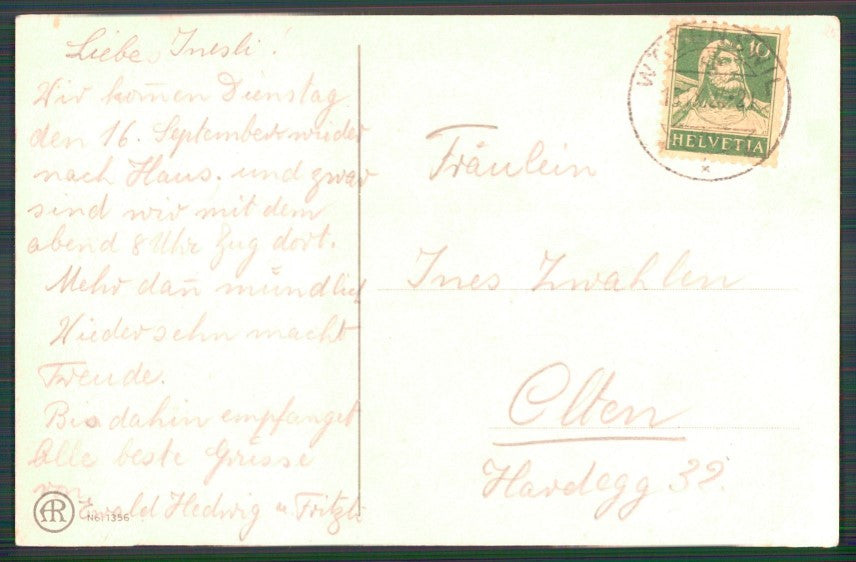 Liebes Inesli!
Wir kom̄en Dienstag
den 16. September wieder
nach Haus. und zwar
sind wir mit dem
abend 8 Uhr Zug dort.
Mehr dan̄ mündlich
Wiedersehn macht
Freude.
Bis dahin empfanget
Alle beste Grüsse
von
Ewald Hedwig u. Fritzli
AR
N611356
10
HELVETIA
Fräulein
Ines Zwahlen
Olten
Hardegg 32.